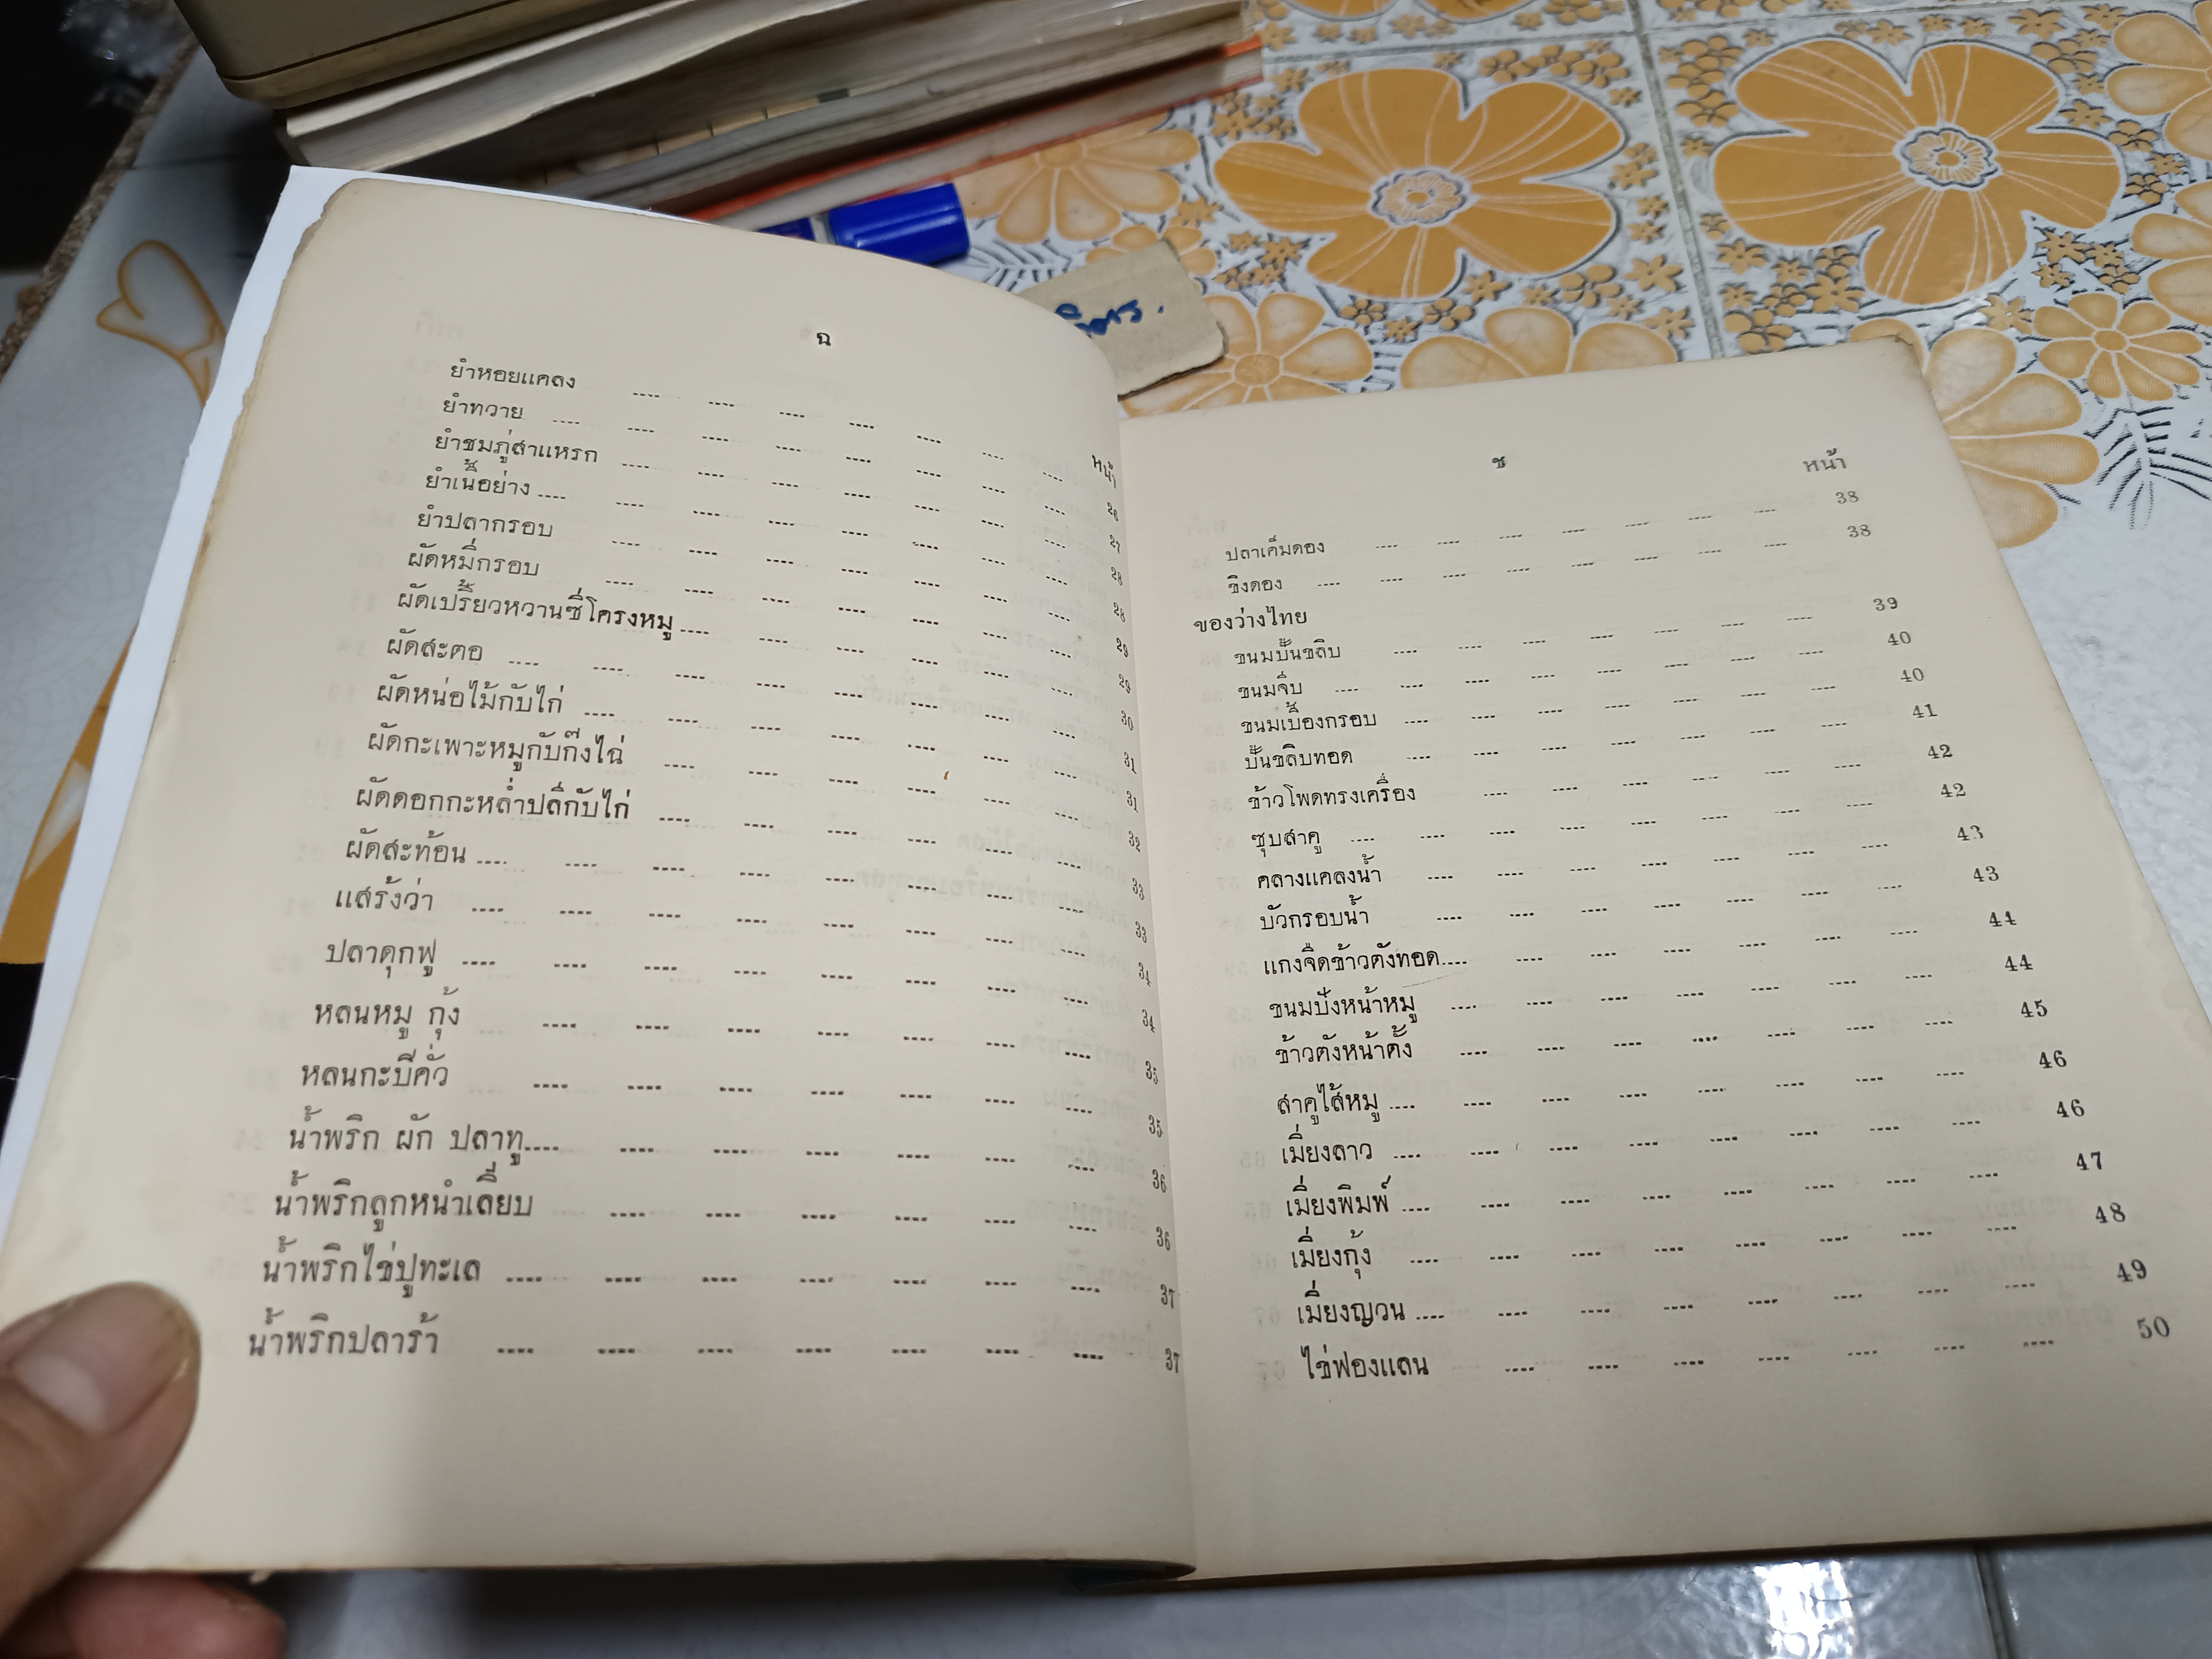 ฉ
หน้า
ยำหอยแคลง .... .... .... .... .... .... .... 26
ยำทวาย .... .... .... .... .... .... .... .... 27
ยำชมภู่สาแหรก .... .... .... .... .... .... .... 28
ยำเนื้อย่าง .... .... .... .... .... .... .... .... 28
ยำปลากรอบ .... .... .... .... .... .... .... 29
ผัดหมี่กรอบ .... .... .... .... .... .... .... 29
ผัดเปรี้ยวหวานซี่โครงหมู .... .... .... .... .... .... 30
ผัดสะตอ .... .... .... .... .... .... .... .... 31
ผัดหน่อไม้กับไก่ .... .... .... .... .... .... .... 31
ผัดกะเพาะหมูกับก๊งไฉ่ .... .... .... .... .... .... 32
ผัดดอกกะหล่ำปลีกับไก่ .... .... .... .... .... .... 33
ผัดสะท้อน .... .... .... .... .... .... .... .... 33
แสร้งว่า .... .... .... .... .... .... .... .... 34
ปลาดุกฟู .... .... .... .... .... .... .... .... 34
หลนหมู กุ้ง .... .... .... .... .... .... .... 35
หลนกะบีคั่ว .... .... .... .... .... .... .... 35
น้ำพริก ผัก ปลาทู .... .... .... .... .... .... .... 36
น้ำพริกลูกหนำเลี้ยบ .... .... .... .... .... .... 36
น้ำพริกไข่ปูทะเล .... .... .... .... .... .... .... 37
น้ำพริกปลาร้า .... .... .... .... .... .... .... 37
ช
หน้า
ปลาเค็มดอง .... .... .... .... .... .... .... 38
ขิงดอง .... .... .... .... .... .... .... .... 38
ของว่างไทย
ขนมปั้นขลิบ .... .... .... .... .... .... .... 39
ขนมจีบ .... .... .... .... .... .... .... .... 40
ขนมเบื้องกรอบ .... .... .... .... .... .... 40
ปั้นขลิบทอด .... .... .... .... .... .... .... 41
ข้าวโพดทรงเครื่อง .... .... .... .... .... .... 42
ซุบสาคู .... .... .... .... .... .... .... .... 42
คลางแคลงน้ำ .... .... .... .... .... .... .... 43
บัวกรอบน้ำ .... .... .... .... .... .... .... 43
แกงจืดข้าวตังทอด .... .... .... .... .... .... .... 44
ขนมปังหน้าหมู .... .... .... .... .... .... .... 44
ข้าวตังหน้าตั้ง .... .... .... .... .... .... .... 45
สาคูไส้หมู .... .... .... .... .... .... .... .... 46
เมี่ยงลาว .... .... .... .... .... .... .... .... 46
เมี่ยงพิมพ์ .... .... .... .... .... .... .... .... 47
เมี่ยงกุ้ง .... .... .... .... .... .... .... .... 48
เมี่ยงญวน .... .... .... .... .... .... .... .... 49
ไข่ฟองแลน .... .... .... .... .... .... .... 50